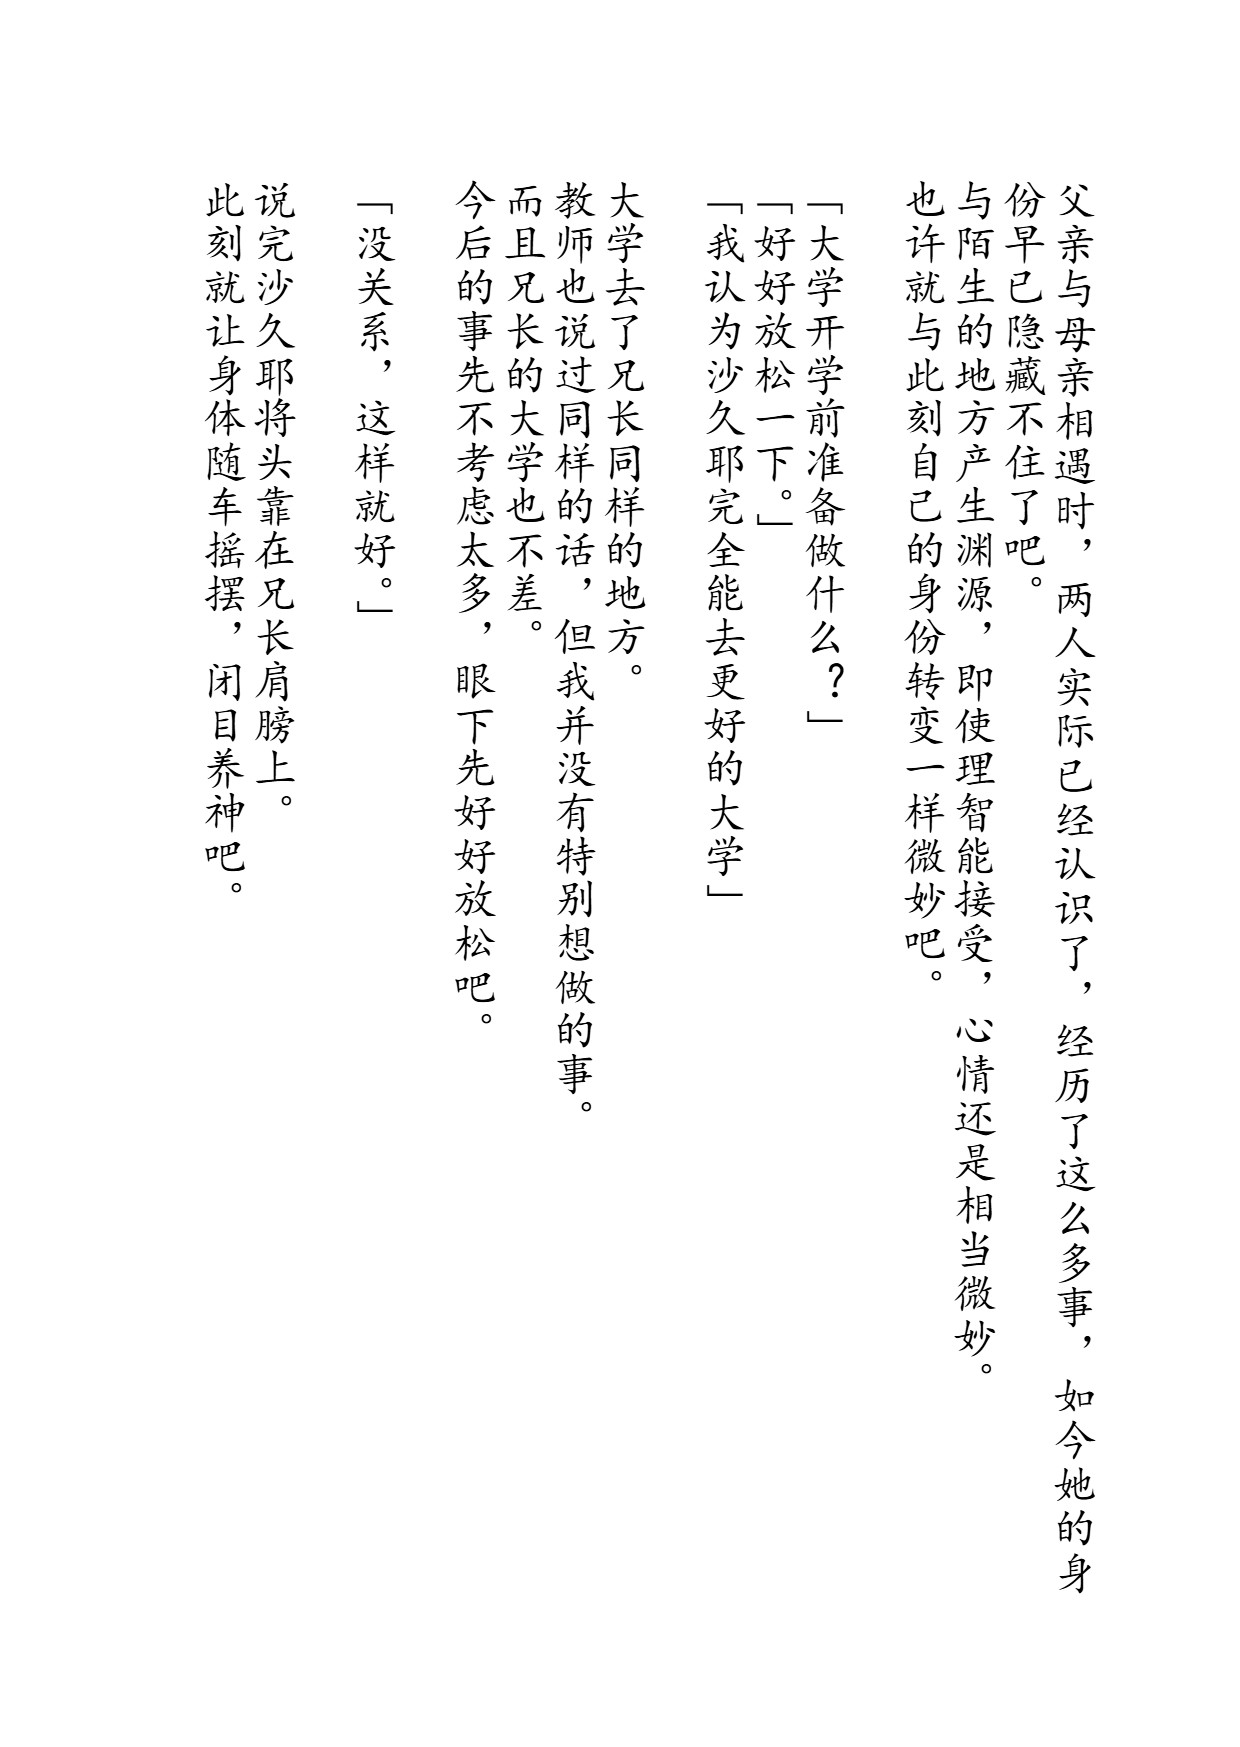 父亲与母亲相遇时，两人实际已经认识了，经历了这么多事，如今她的身
份早已隐藏不住了吧。
与陌生的地方产生渊源，即使理智能接受，心情还是相当微妙。
也许就与此刻自己的身份转变一样微妙吧。
「大学开学前准备做什么？」
「好好放松一下。」
「我认为沙久耶完全能去更好的大学」
大学去了兄长同样的地方。
教师也说过同样的话，但我并没有特别想做的事。
而且兄长的大学也不差。
今后的事先不考虑太多，眼下先好好放松吧。
「没关系，这样就好。」
说完沙久耶将头靠在兄长肩膀上。
此刻就让身体随车摇摆，闭目养神吧。